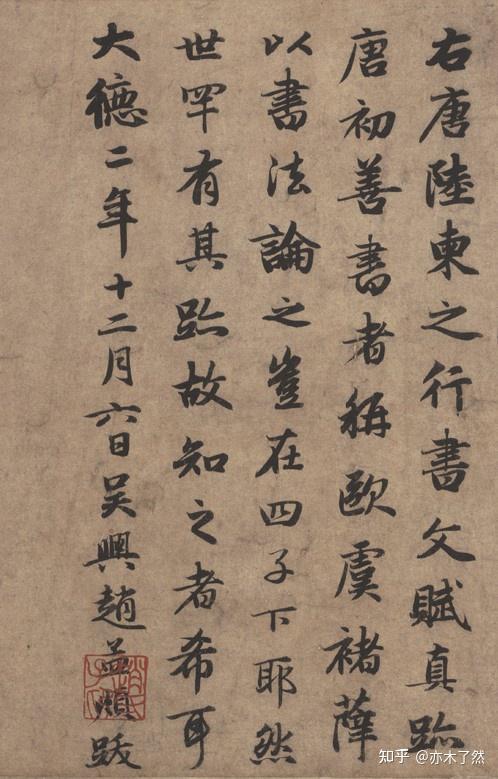 右唐陸柬之行書文賦真跡
唐初善書者稱歐虞褚薛
以書法論之豈在四子下耶然
世罕有其跡故知之者希耳
大德二年十二月六日吴興趙孟頫跋
知乎 @亦木了然